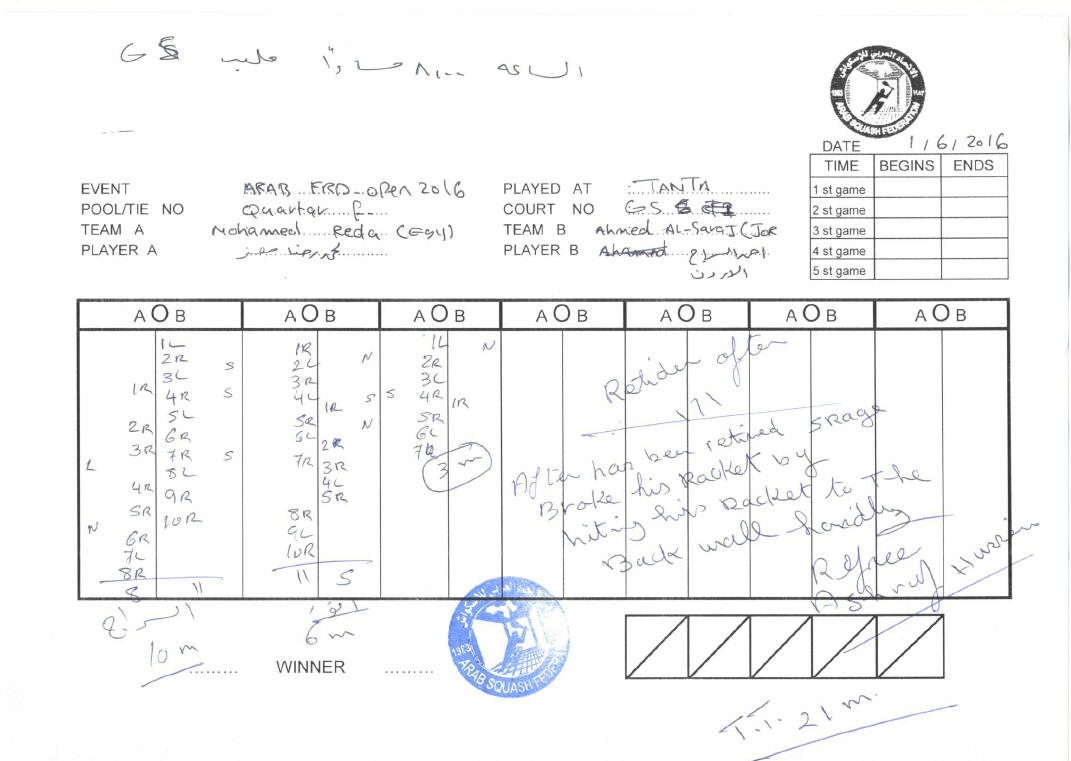 الساعه ٨,٠٠ مساءً ملعب GS
الاتحاد العربي للإسكواش
1983
ARAB SQUASH FEDERATION
DATE 1/6/2016
TIME BEGINS ENDS
1 st game
2 st game
3 st game
4 st game
5 st game
EVENT ARAB FRD open 2016
POOL/TIE NO Quartar f.
TEAM A Mohamed Reda (Egy)
PLAYER A محمد رضا
PLAYED AT : TANTA
COURT NO GS
TEAM B Ahmed AL-Saraj (Jor
PLAYER B احمد السراج
الاردن
A O B A O B A O B A O B A O B A O B A O B
1L
2R S
3L
1R 4R S
5L
2R 6R
3R 7R S
L 8L
4R 9R
5R 10R
N 6R
7L
8R
8 11
1R
2L N
3R
4L S
1R
5R N
6L 2R
7R 3R
4L
5R
8R
9L
10R
11 5
1L N
2R
3L
S 4R 1R
5R
6L
7R
3 m
Retider after
1/1
After has been retired SRage
Broke his Racket by
hiting his Racket to The
Back wall hardly
Refree
Ashraf Hussien
السراج
10 m
6 m
WINNER
الاتحاد العربي للإسكواش
1983
ARAB SQUASH FEDERATION
T.T. 21 m.